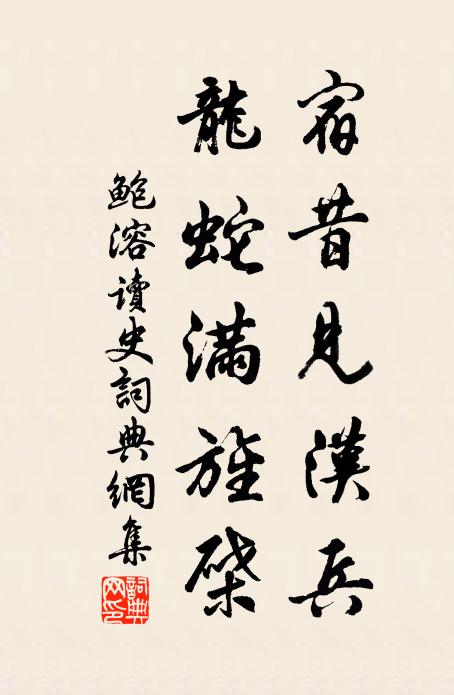 宿昔見漢兵
龍蛇滿旌棨
鮑溶讀史詞典網集
詞典
网印